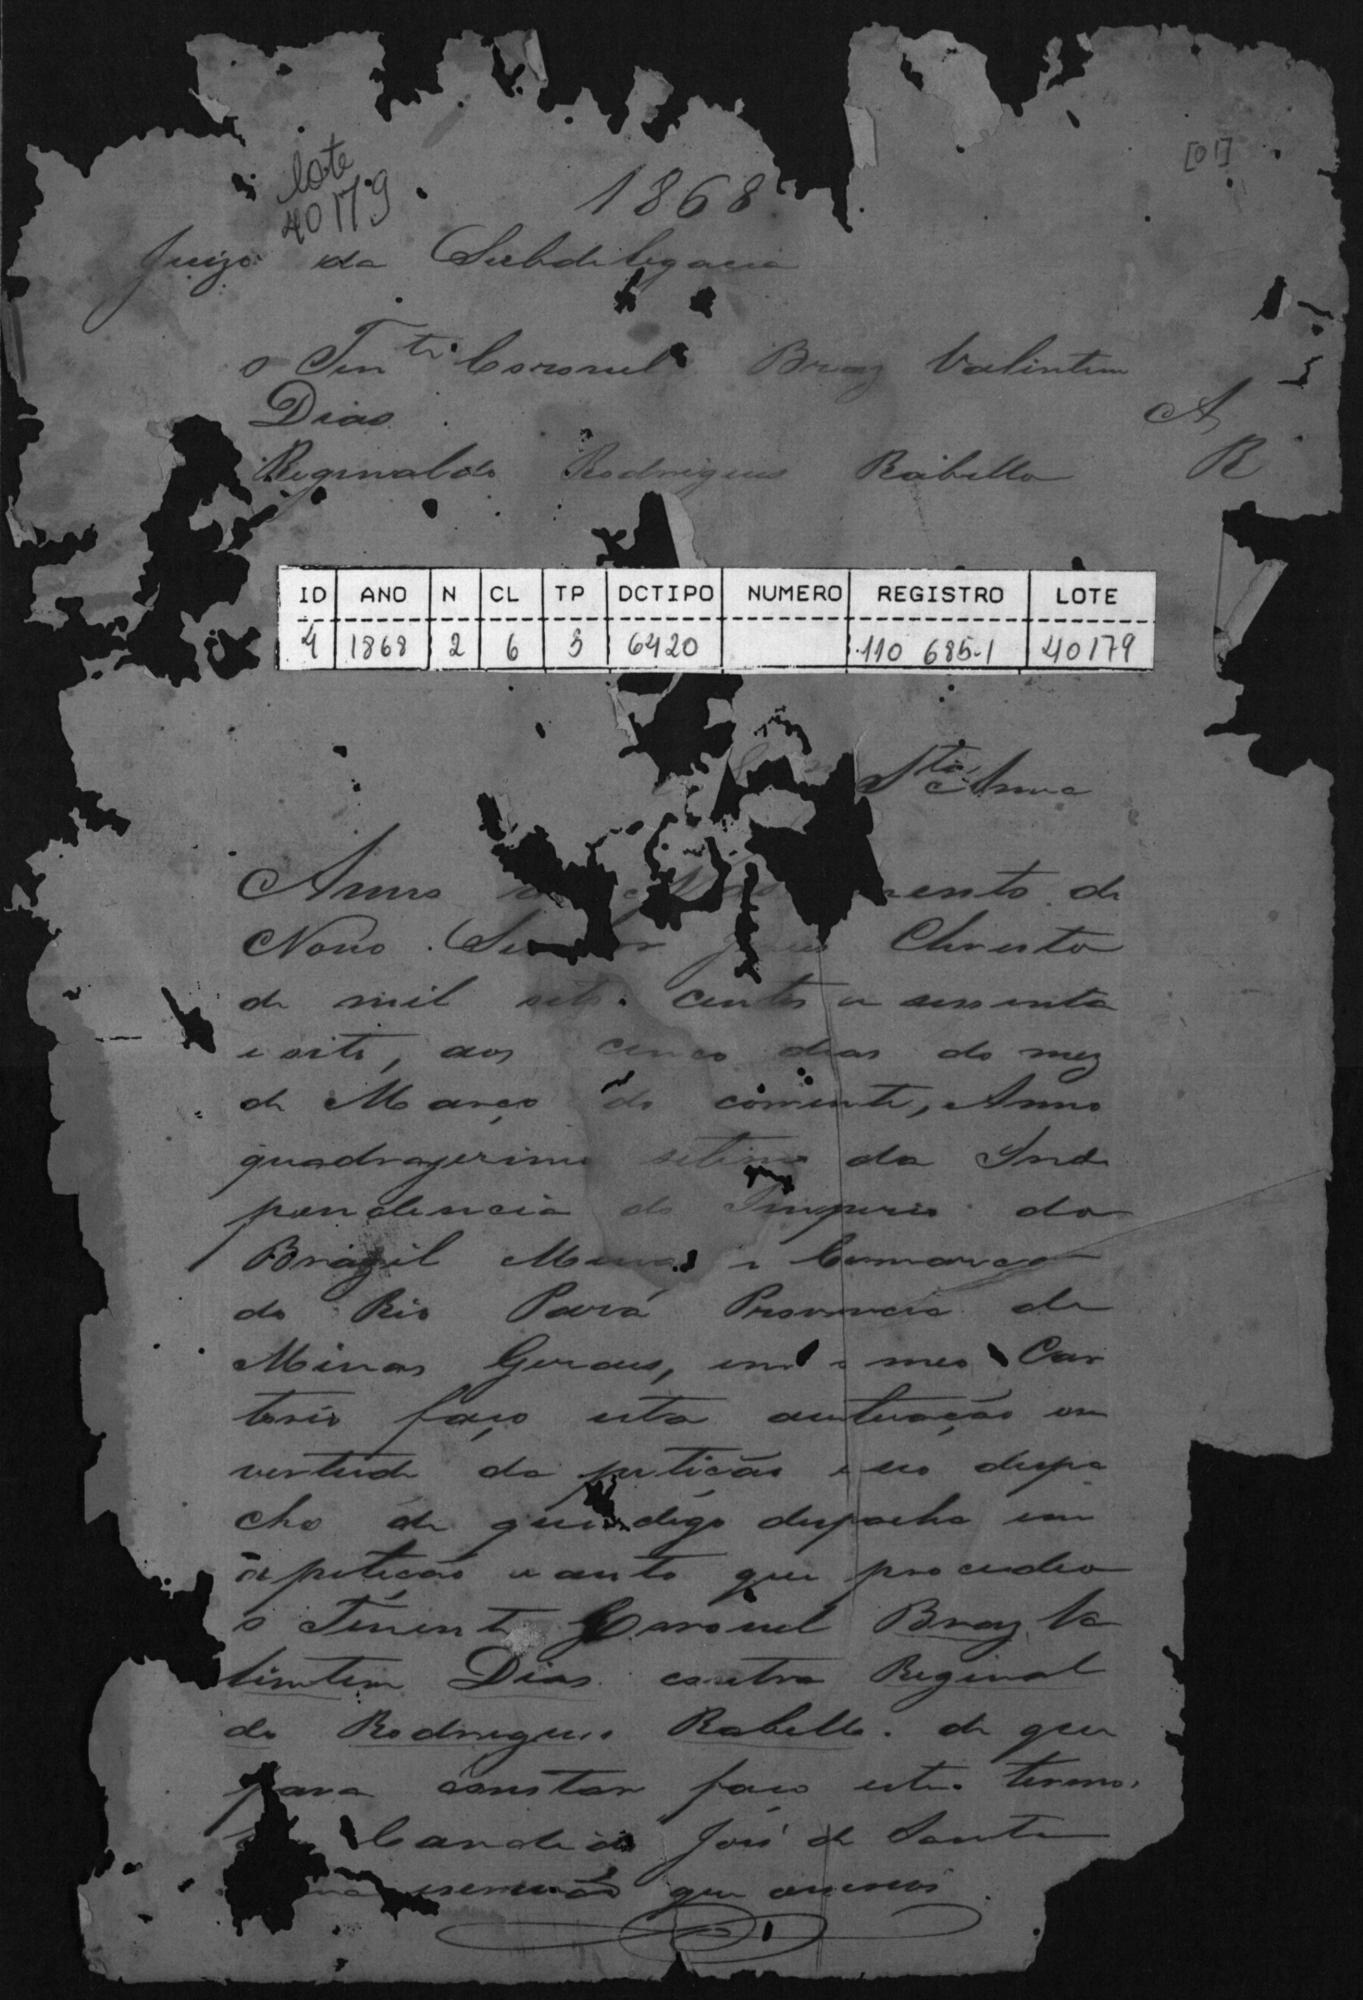 [01]
lote
40179
1868
Juizo da Subdelegacia
o Tente Coronel Braz Valintim
Dias A
Reginaldo Rodrigues Rabello R
ID ANO N CL TP DCTIPO NUMERO REGISTRO LOTE
4 1868 2 6 3 6420 110 685-1 40179
Sta Anna
Anno mento de
Nosso Christo
de mil centos e sessenta
e oito, aos cinco dias do mez
de Março do corrente, Anno
quadragesimo setimo da Inde
pendencia do Imperio do
Brazil e Comarca
do Rio Pará Provincia de
Minas Geraes, em meo Car
torio faço esta autuação em
vertude da petição e seo despa
cho de que digo despacho em
petição e auto que procedeo
o Tenente Coronel Braz Va
lintim Dias contra Reginal
do Rodrigues Rabello. de que
para constar faço este termo.
Candido José de Sant
escrivão que escrevi